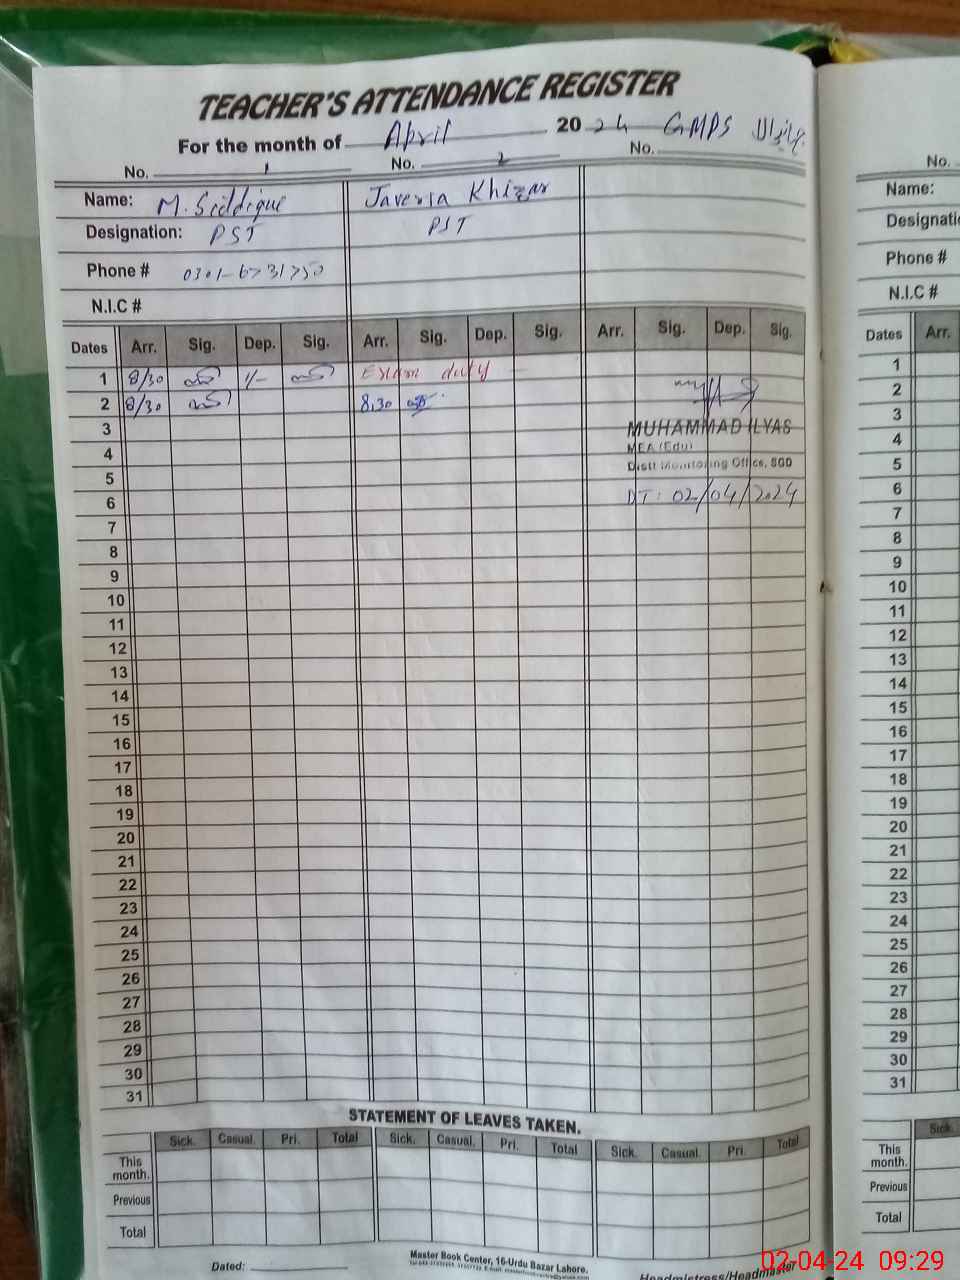 TEACHER'S ATTENDANCE REGISTER
For the month of April 2024 GMPS
No. 1 No. 2 No.
Name: M. Siddique Javeria Khizar
Designation: PST PST
Phone #
N.I.C #
Dates Arr. Sig. Dep. Sig. Arr. Sig. Dep. Sig. Arr. Sig. Dep. Sig.
1 8/30 1/- Exam duty
2 8/30 8.30
3 MUHAMMAD ILYAS
4 MEA (Edu)
5 Distt Monitoring Office, SGD
6 DT: 02/04/2024
7
8
9
10
11
12
13
14
15
16
17
18
19
20
21
22
23
24
25
26
27
28
29
30
31
STATEMENT OF LEAVES TAKEN.
Sick. Casual. Pri. Total Sick. Casual. Pri. Total Sick. Casual. Pri. Total
This month.
Previous
Total
Dated:
Master Book Center, 16-Urdu Bazar Lahore.
Headmistress/Headmaster
02-04-24 09:29
No.
Name:
Designati
Phone #
N.I.C #
Dates Arr.
1
2
3
4
5
6
7
8
9
10
11
12
13
14
15
16
17
18
19
20
21
22
23
24
25
26
27
28
29
30
31
Sick.
This month.
Previous
Total